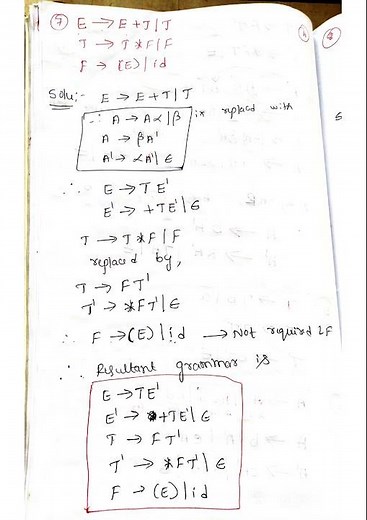 ⑦ E → E+T|T
T → T*F|F
F → (E)|id
Solu:- E → E+T|T
∵ A → Aα|β is replacd with
A → βA'
A' → αA'|ϵ
∴ E → TE'
E' → +TE'|ϵ
T → T*F|F
replaced by,
T → FT'
T' → *FT'|ϵ
∴ F → (E)|id → Not required LF
∴ Resultant grammar is
E → TE'
E' → +TE'|ϵ
T → FT'
T' → *FT'|ϵ
F → (E)|id